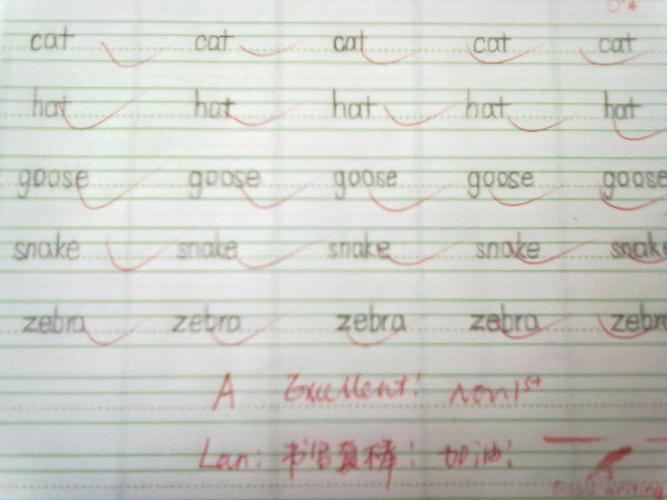 cat cat cat cat cat
hat hat hat hat hat
goose goose goose goose goose
snake snake snake snake snake
zebra zebra zebra zebra zebra
A Excellent!
Lan: 书写真棒! 加油!
writing